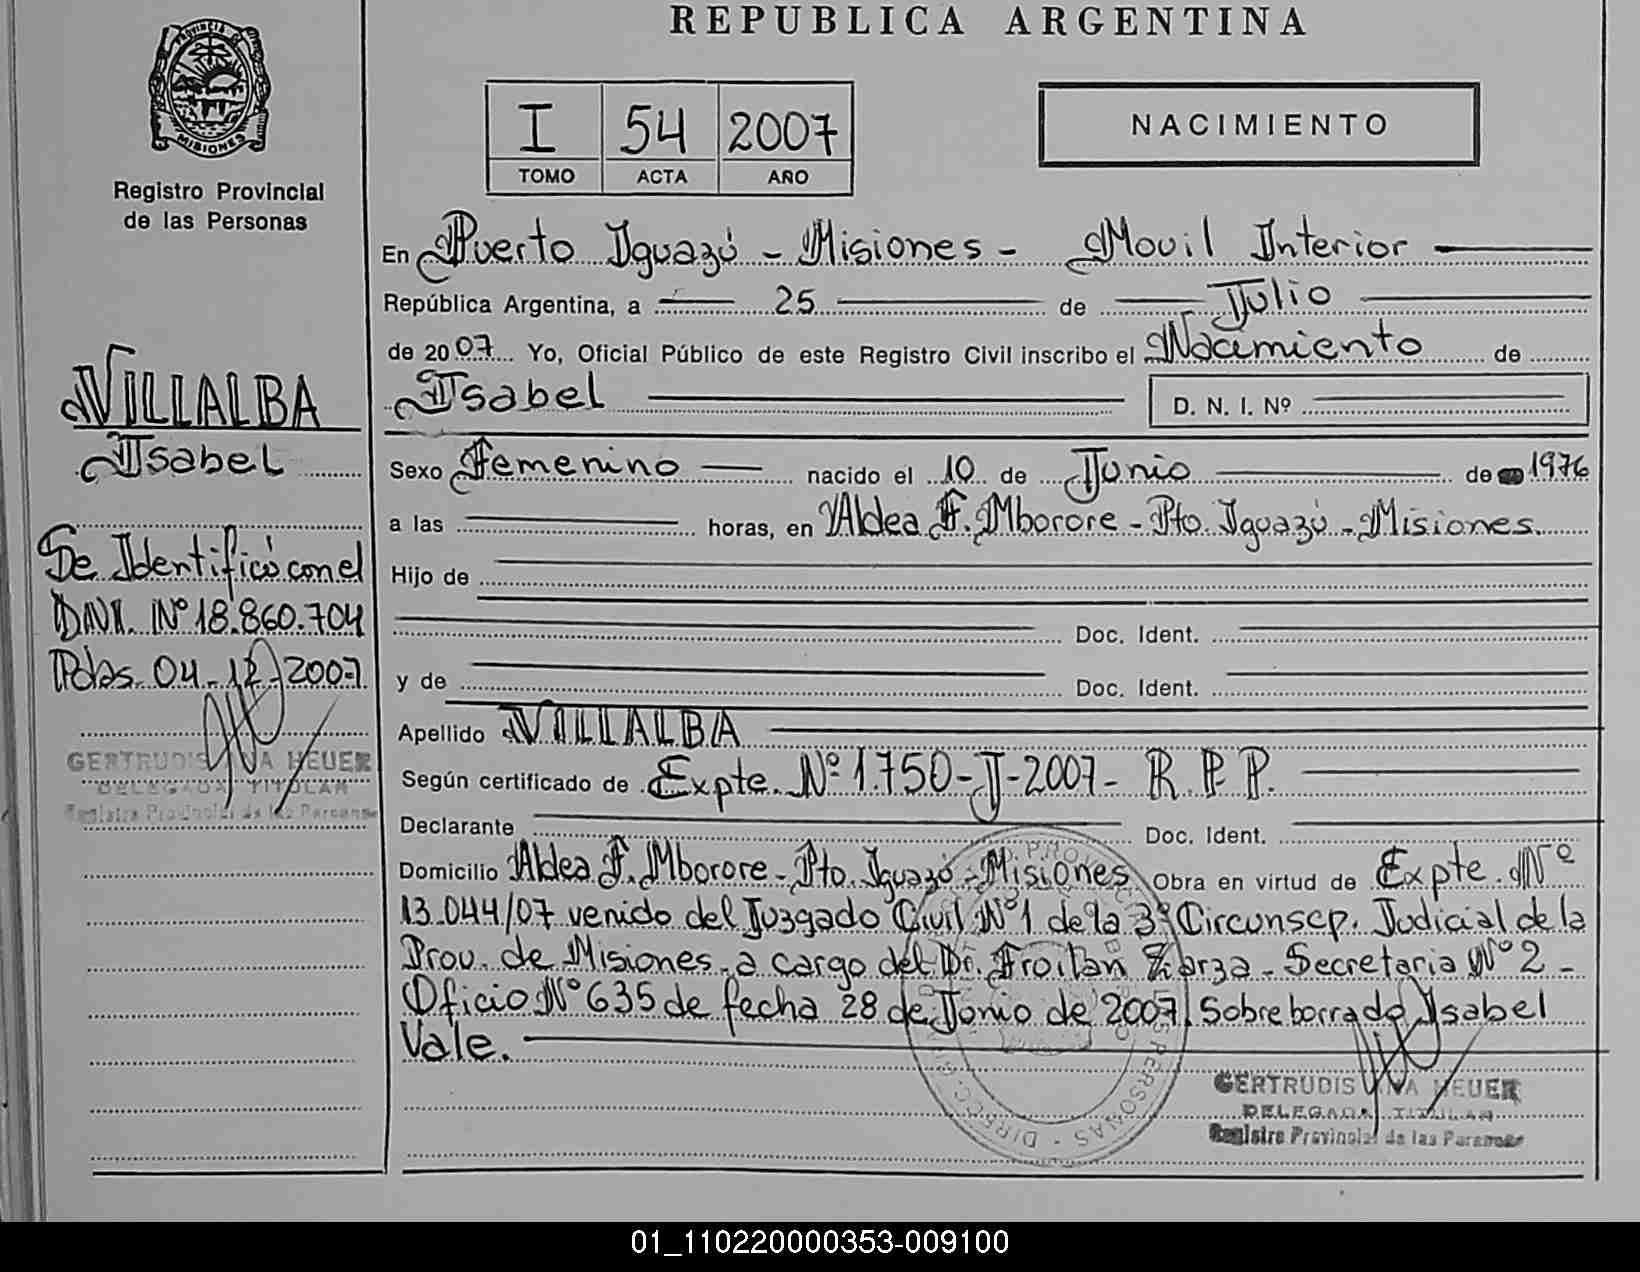 REPUBLICA ARGENTINA
PROVINCIA DE
MISIONES
Registro Provincial
de las Personas
I 54 2007
TOMO ACTA AÑO
NACIMIENTO
VILLALBA
Isabel
Se Identificó con el
DNI. Nº 18.860.704
Pdas. 04-12-2007
GERTRUDIS ANA HEUER
DELEGADA TITULAR
Registro Provincial de las Personas
En Puerto Iguazú - Misiones - Movil Interior
República Argentina, a 25 de Julio
de 2007 Yo, Oficial Público de este Registro Civil inscribo el Nacimiento de
Isabel D. N. I. Nº
Sexo Femenino nacido el 10 de Junio de 1976
a las horas, en Aldea F. Mborore - Pto. Iguazú - Misiones.
Hijo de
Doc. Ident.
y de Doc. Ident.
Apellido VILLALBA
Según certificado de Expte. Nº 1.750-J-2007- R.P.P.
Declarante Doc. Ident.
Domicilio Aldea F. Mborore - Pto. Iguazú - Misiones Obra en virtud de Expte. Nº
13.044/07 venido del Juzgado Civil Nº 1 de la 3º Circunscp. Judicial de la
Prov. de Misiones a cargo del Dr. Froilan Zarza - Secretaria Nº 2 -
Oficio Nº 635 de fecha 28 de Junio de 2007. Sobreborrado Isabel
Vale.
GERTRUDIS ANA HEUER
DELEGADA TITULAR
Registro Provincial de las Personas
01_110220000353-009100